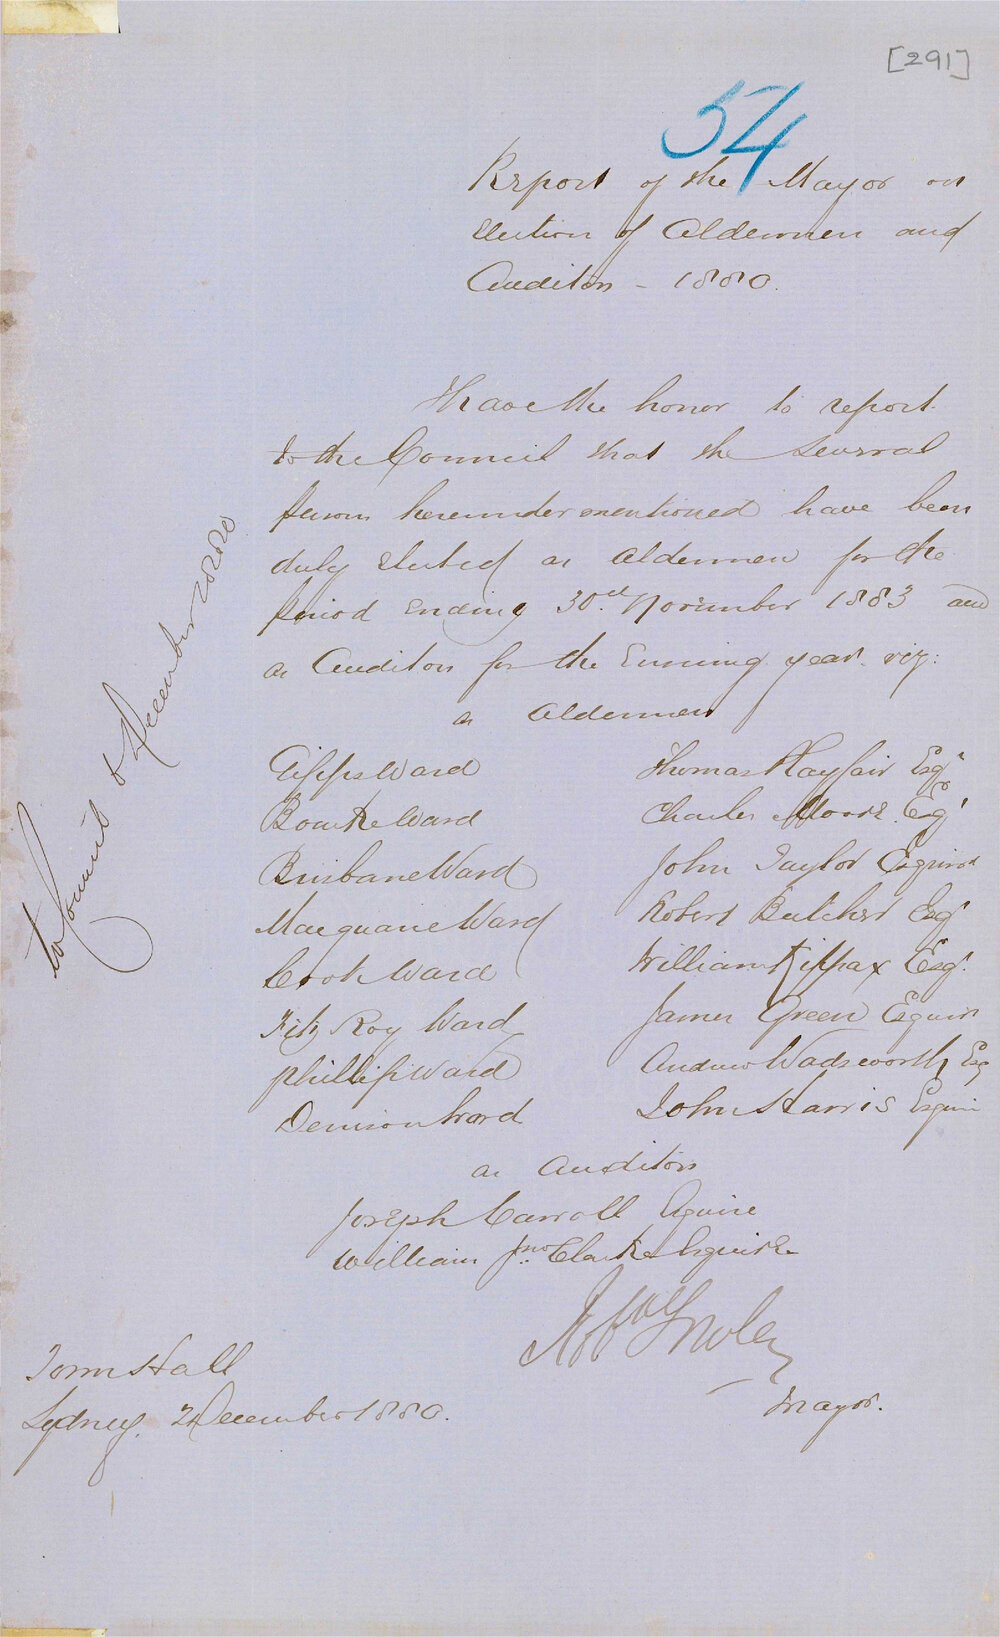 [291]
54
Report of the Mayor on
Election of Aldermen and
Auditors - 1880.
I have the honor to report
to the Council that the several
persons hereunder mentioned have been
duly elected as Aldermen for the
period ending 30th November 1883 and
as Auditors for the Ensuing year. viz:
as Aldermen
Gipps Ward Thomas Playfair Esqr
Bourke Ward Charles Moore Esqr
Brisbane Ward John Taylor Esquire
Macquarie Ward Robert Butcher Esqr
Cook Ward William Kippax Esqr.
Fitz Roy Ward James Green Esquire
Phillip Ward Andrew Wadsworth Esq
Denison Ward John Harris Esquire
as Auditors
Joseph Carroll Esquire
William Jno. Clarke Esquire
Robt Fowler
Mayor.
Town Hall
Sydney. 2 December 1880.
to Council December